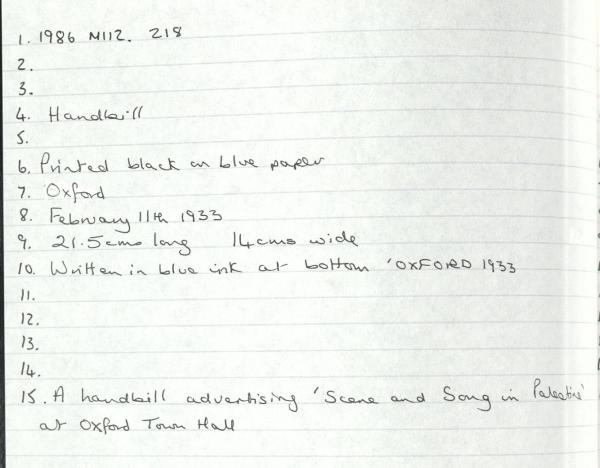 1. 1986 M112. 218
2.
3.
4. Handbill
5.
6. Printed black on blue paper
7. Oxford
8. February 11th 1933
9. 21.5cms long 14cms wide
10. Written in blue ink at bottom 'OXFORD 1933
11.
12.
13.
14.
15. A handbill advertising 'Scene and Song in Palestine'
at Oxford Town Hall